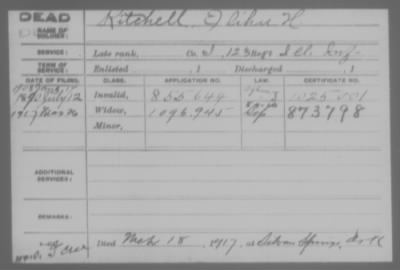 DEAD
NAME OF SOLDIER: Kitchell, Elihu H
SERVICE: Late rank, Co. I, 123 Reg't Ill. Inf.
TERM OF SERVICE: Enlisted , 1 Discharged , 1
DATE OF FILING. CLASS. APPLICATION NO. LAW. CERTIFICATE NO.
1890 July 12 Invalid, 855,644 1025,001
1917 Mar 26 Widow, 1096.945 873798
Minor,
ADDITIONAL SERVICES:
REMARKS:
Died Mch 18, 1917, at Siloam Springs, Ark